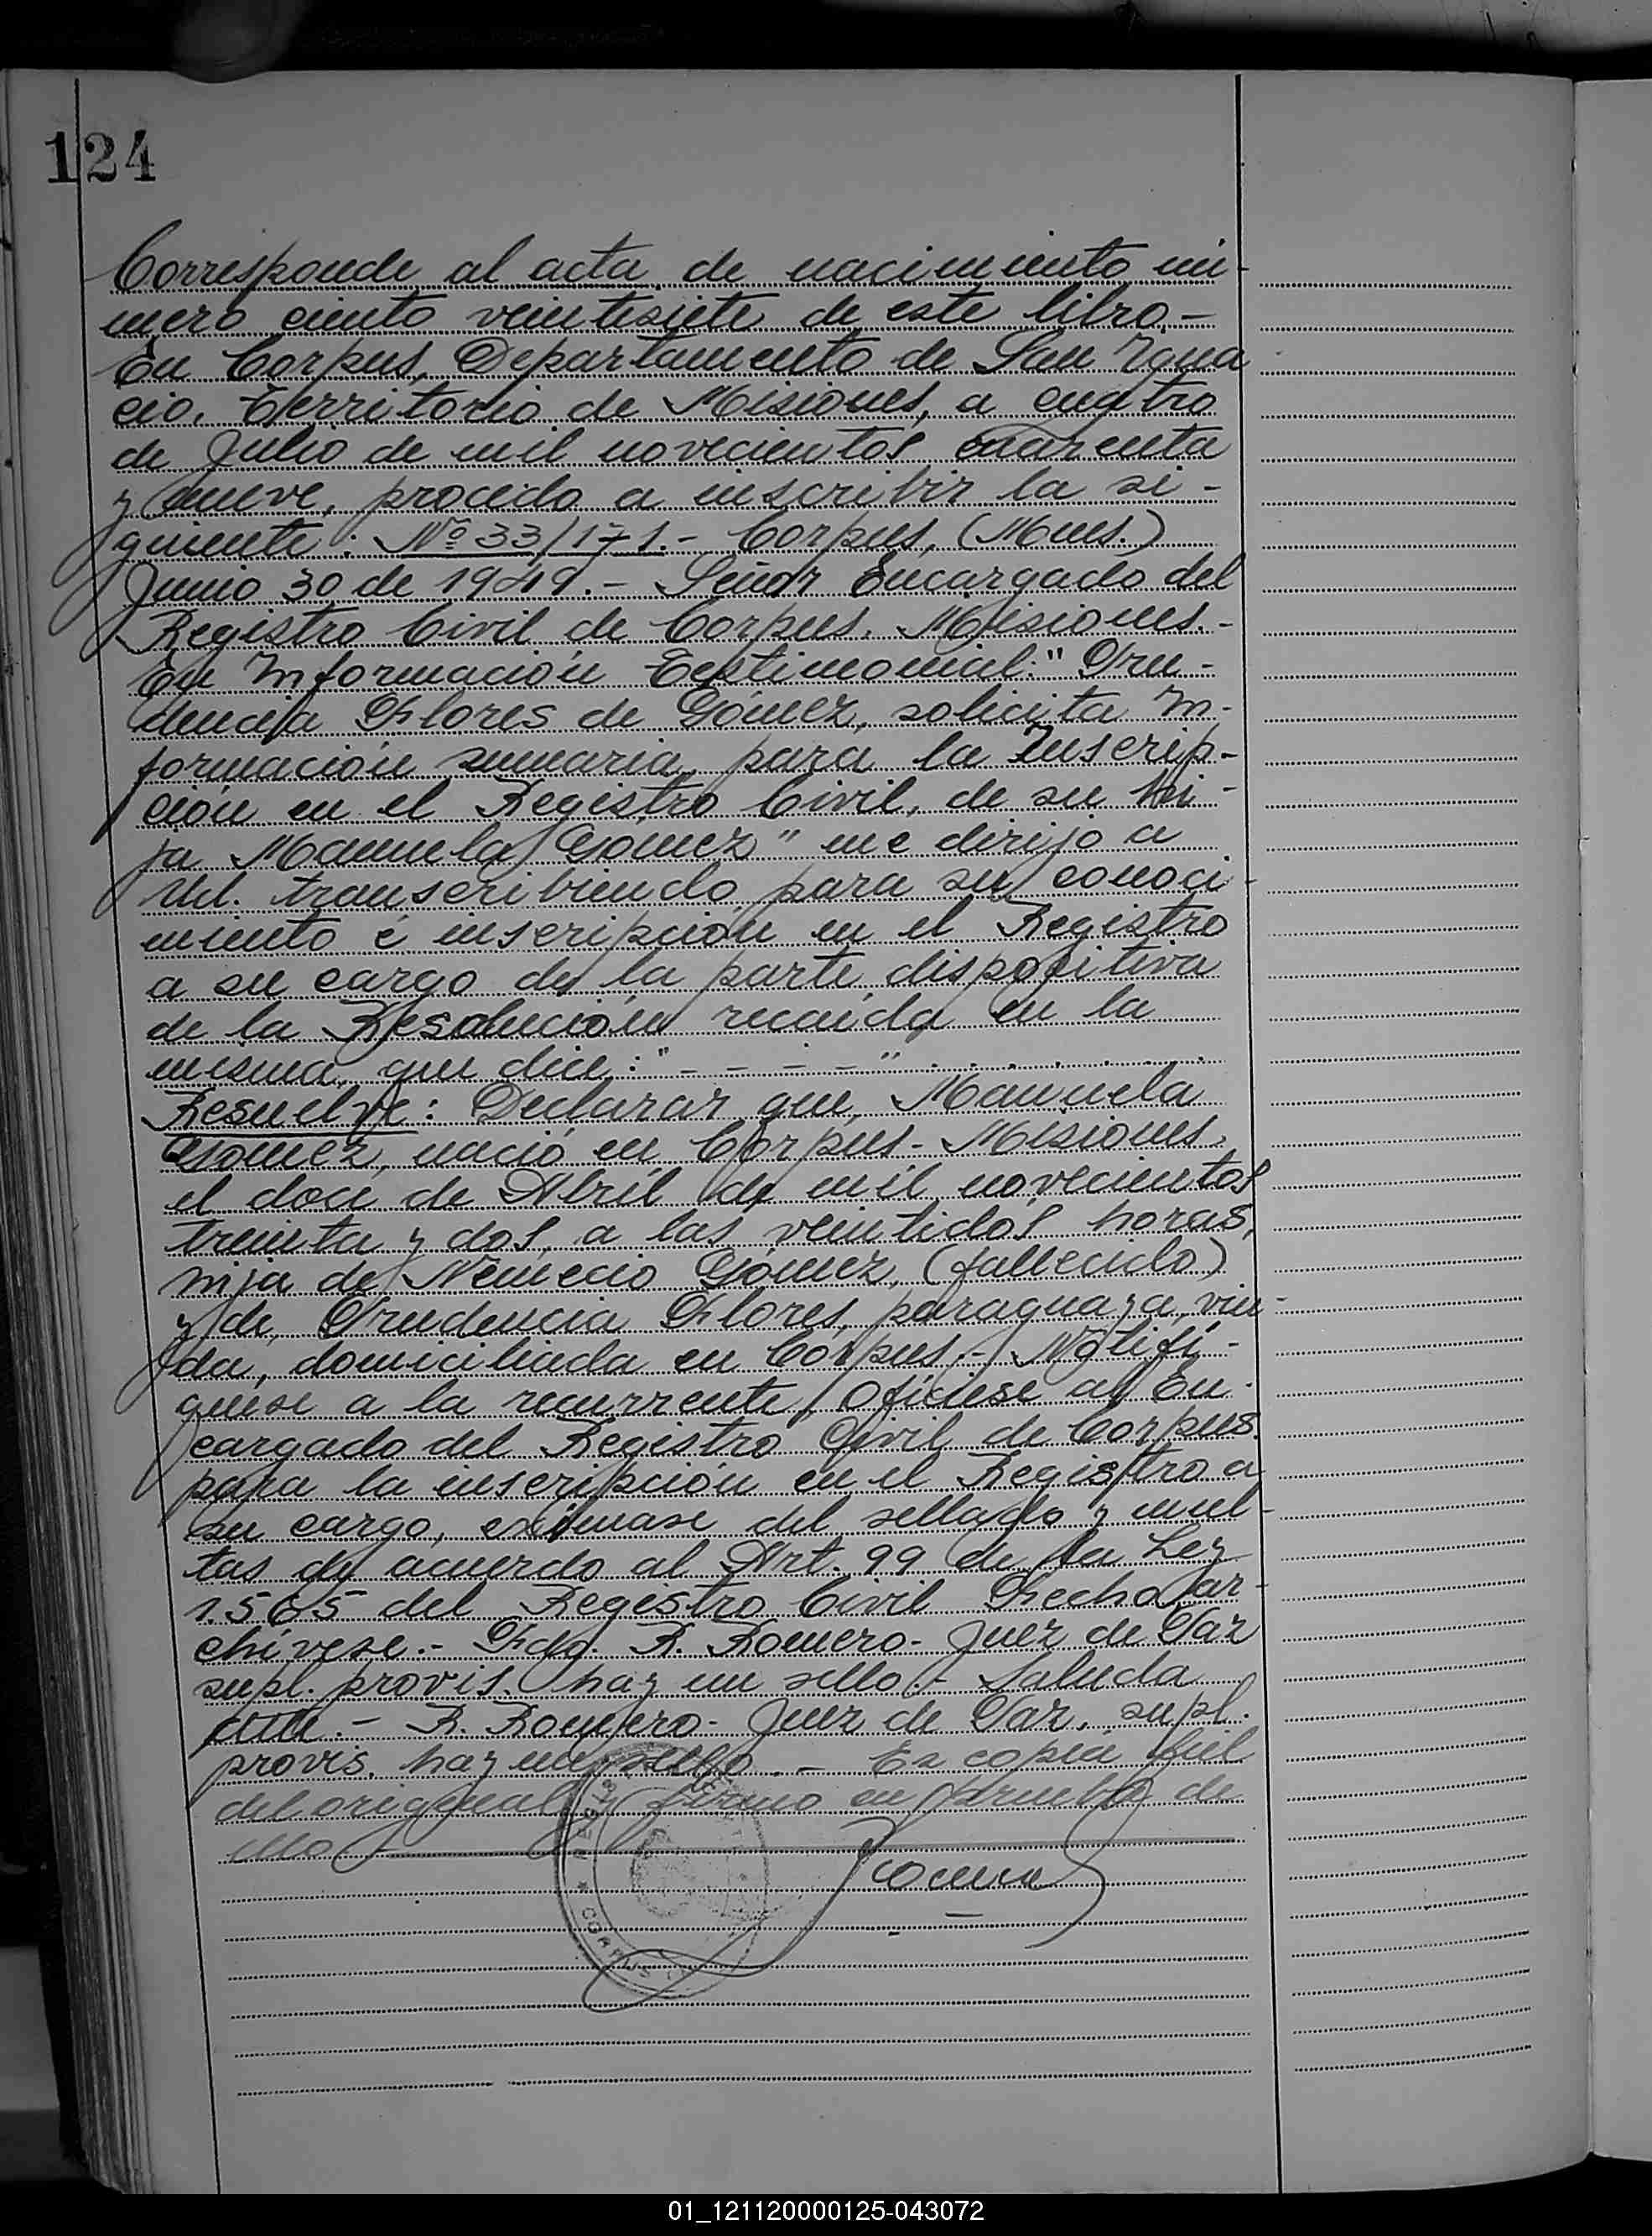 124
Corresponde al acta de nacimiento nú-
mero ciento veintesiete de este libro.-
En Corpus, Departamento de San Igna
cio, Territorio de Misiones, a cuatro
de Julio de mil novecientos cuarenta
y nueve, procedo a inscribir la si-
guiente: Nº 33/171.- Corpus, (Mnes.)
Junio 30 de 1949.- Señor Encargado del
Registro Civil de Corpus. Misiones.-
En Información Testimonial: "Pru-
dencia Flores de Gómez, solicita In-
formación sumaria para la Inscrip-
ción en el Registro Civil, de su hi-
ja Manuela Gómez" me dirijo a
Ud. transcribiendo para su conoci-
miento é inscripción en el Registro
a su cargo de la parte dispositiva
de la Resolución recaida en la
misma, que dice: "- - - -"
Resuelve: Declarar que, Manuela
Gómez, nació en Corpus - Misiones,
el doce de Abril de mil novecientos
treinta y dos, a las veintidós horas,
hija de Nemecio Gómez, (fallecido)
y de Prudencia Flores, paraguaya, viu-
da, domiciliada en Corpus.- Notifí-
quese a la recurrente, Ofíciese al En-
cargado del Registro Civil de Corpus
para la inscripción en el Registro a
su cargo, exímase del sellado y mul-
tas de acuerdo al Art. 99 de la Ley
1.565 del Registro Civil Fecho, ar-
chívese.- Fdo. R. Romero. Juez de Paz
supl. provis. hay un sello.- Saluda
atte.- R. Romero. Juez de Paz, supl.
provis. hay un sello.- Es copia fiel
del original firmo en prueba de
ello
CORPUS
01_121120000125-043072